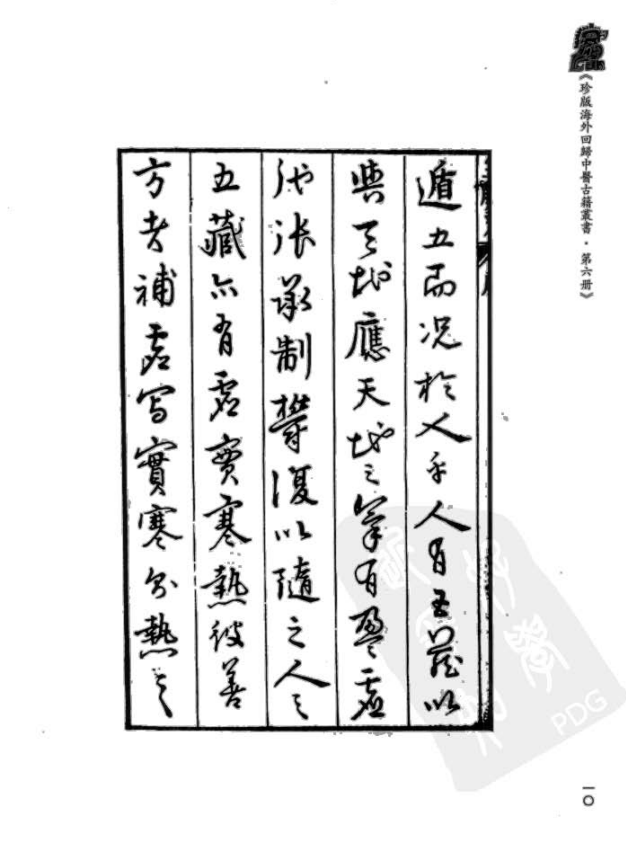 《珍版海外回歸中醫古籍叢書·第六册》
遁五而况於人乎人有五藏以
與天地應天地之氣有盈虛
弛張承制鬱復以隨之人之
五藏亦有虛實寒熱彼善
方者補虛寫實寒熱之
一〇
PDG